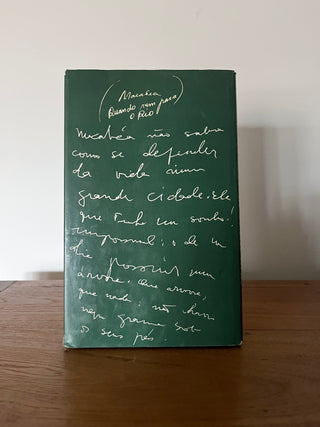 (Macabea
Quando vem para
o Rio)
Macabéa não sabia
como se defender
da vida numa
grande cidade. Ela
que tinha um sonho:
impossível: o de um
dia possuir uma
árvore. Que árvore,
que nada: não havia
nem grama sob
os seus pés.